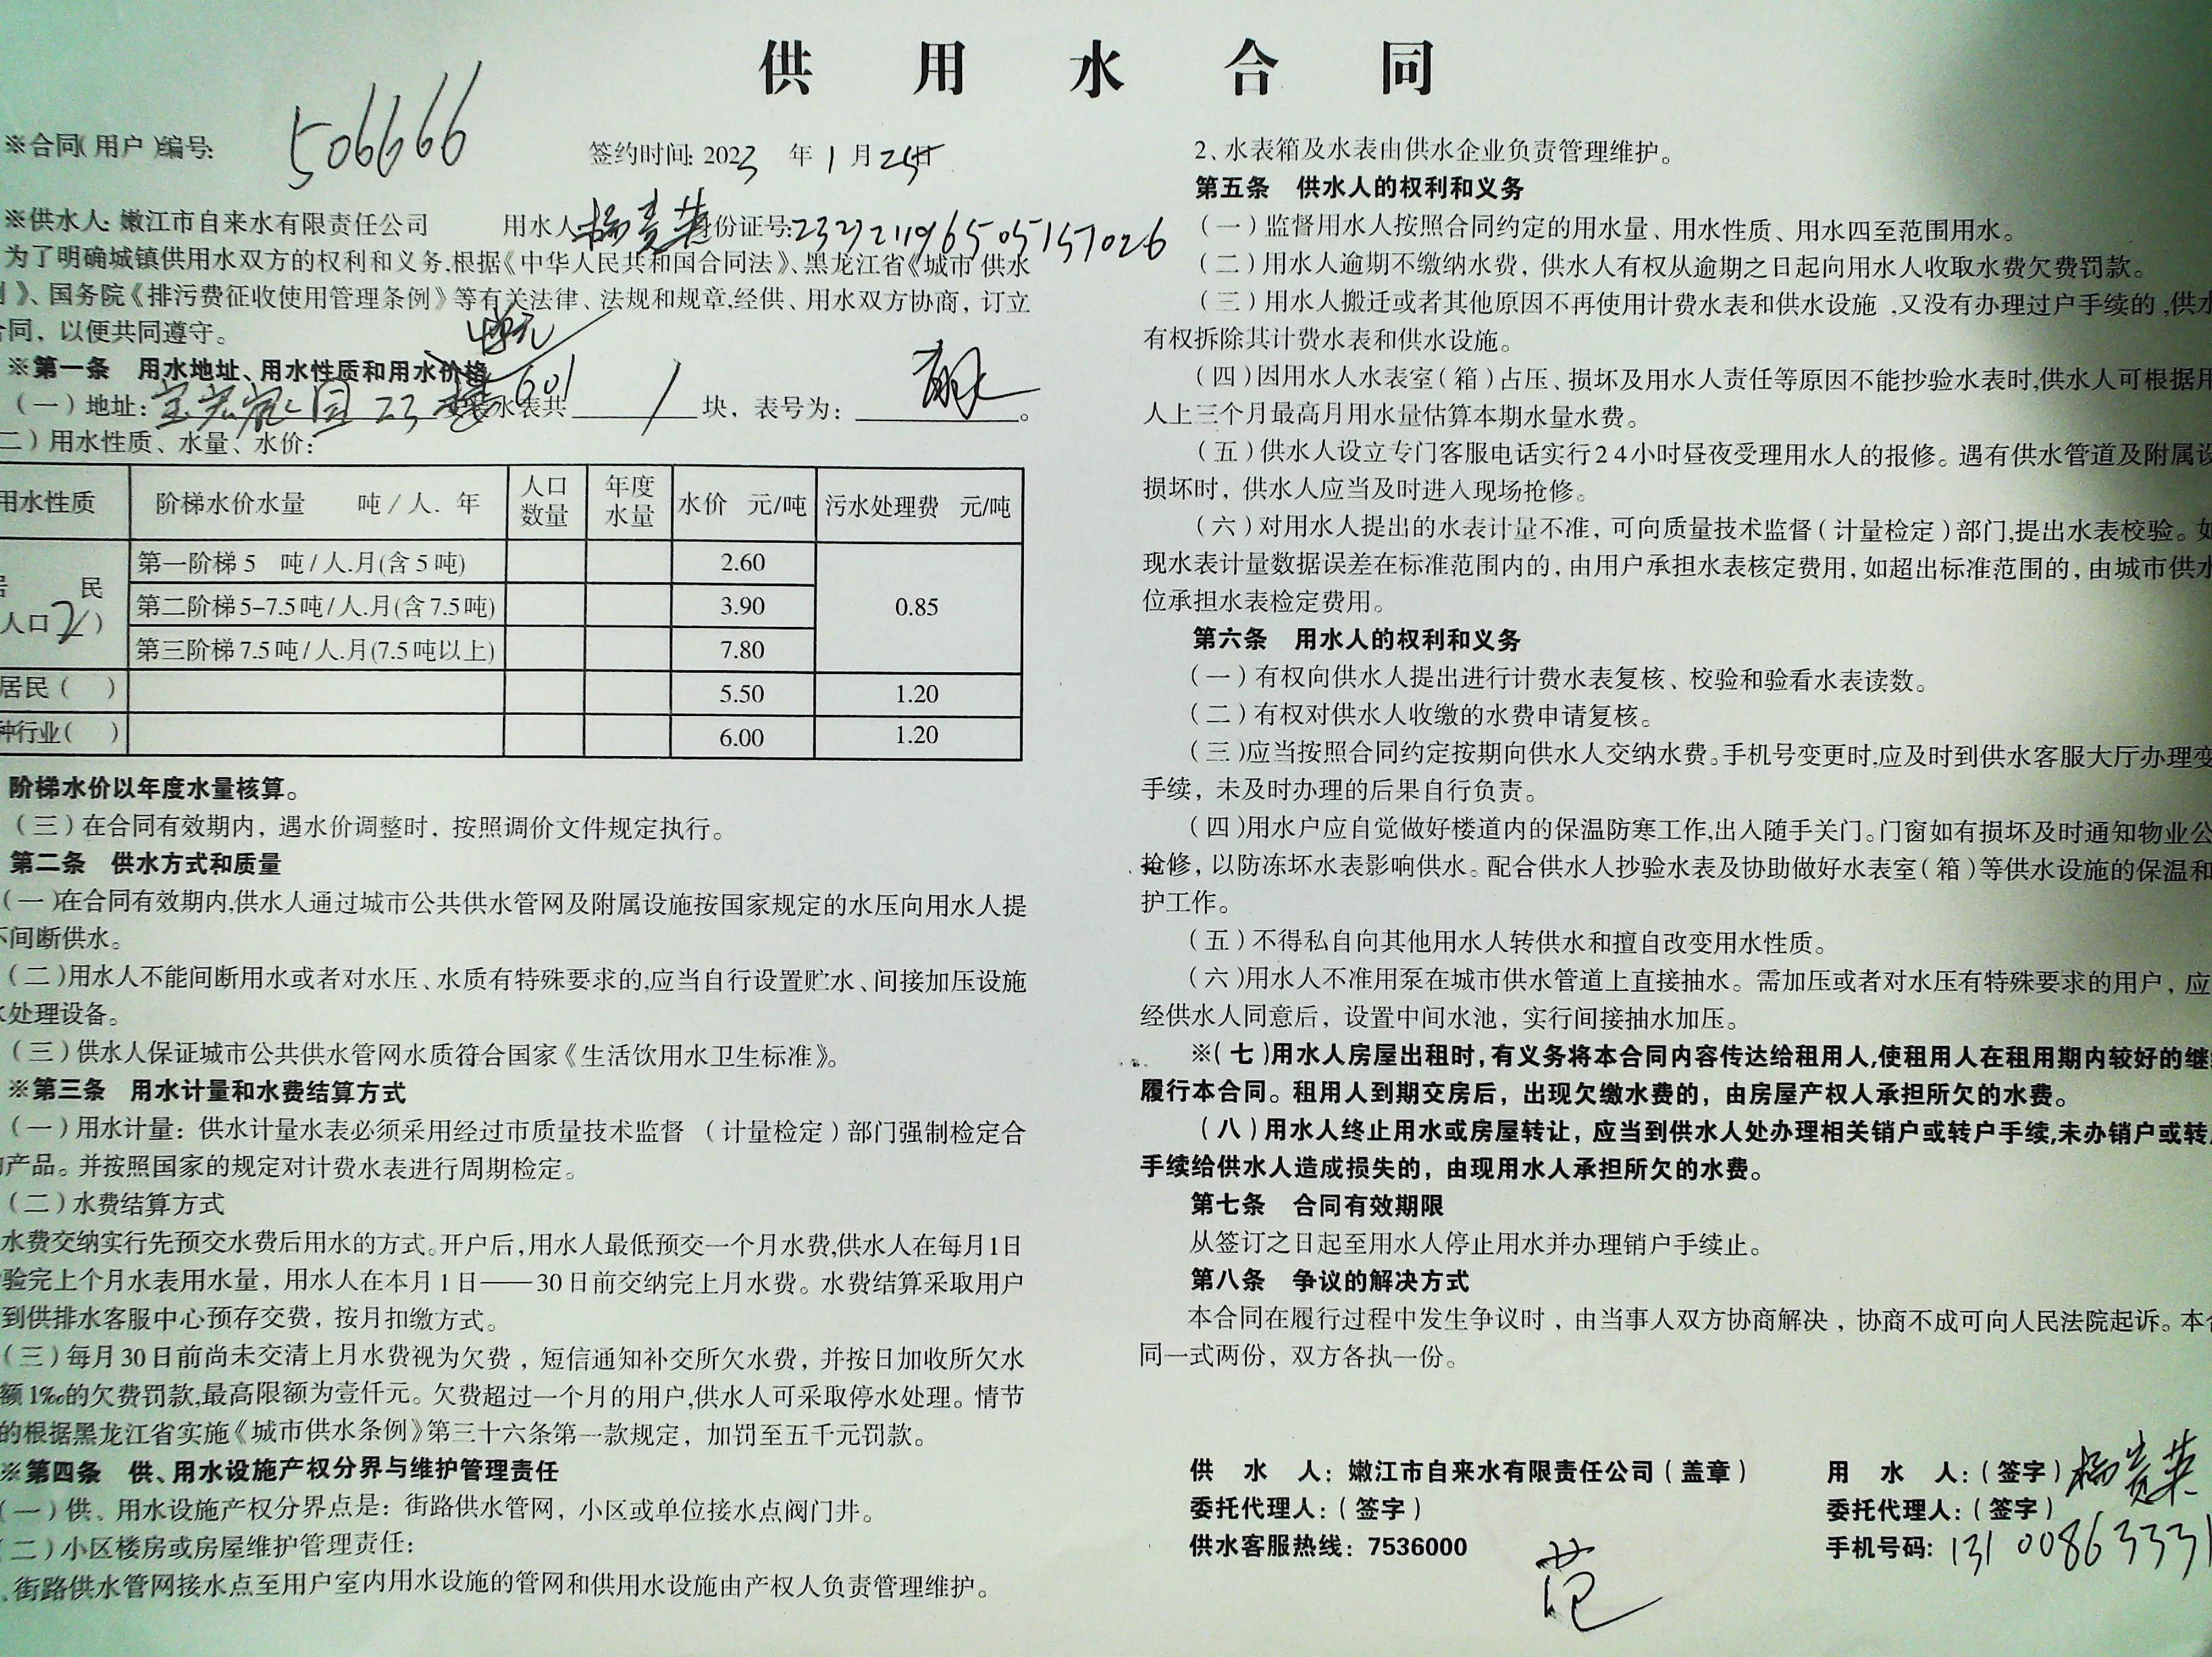 供用水合同
※合同(用户)编号: 506666 签约时间: 2023 年 1 月 25 日
※供水人: 嫩江市自来水有限责任公司 用水人 杨贵荣 身份证号: 232721196505157026
为了明确城镇供用水双方的权利和义务,根据《中华人民共和国合同法》、黑龙江省《城市供水
》、国务院《排污费征收使用管理条例》等有关法律、法规和规章,经供、用水双方协商,订立
合同,以便共同遵守。
※第一条 用水地址、用水性质和用水价格
单元
(一)地址: 宝宏花园 23 楼 601 水表共 1 块,表号为:
二)用水性质、水量、水价:
用水性质 阶梯水价水量 吨/人.年 人口数量 年度水量 水价 元/吨 污水处理费 元/吨
居民 第一阶梯 5 吨/人.月(含5吨) 2.60
人口2) 第二阶梯5-7.5吨/人.月(含7.5吨) 3.90 0.85
第三阶梯7.5吨/人.月(7.5吨以上) 7.80
居民( ) 5.50 1.20
种行业( ) 6.00 1.20
阶梯水价以年度水量核算。
(三)在合同有效期内,遇水价调整时,按照调价文件规定执行。
第二条 供水方式和质量
(一)在合同有效期内,供水人通过城市公共供水管网及附属设施按国家规定的水压向用水人提
不间断供水。
(二)用水人不能间断用水或者对水压、水质有特殊要求的,应当自行设置贮水、间接加压设施
水处理设备。
(三)供水人保证城市公共供水管网水质符合国家《生活饮用水卫生标准》。
※第三条 用水计量和水费结算方式
(一)用水计量:供水计量水表必须采用经过市质量技术监督 (计量检定)部门强制检定合
的产品。并按照国家的规定对计费水表进行周期检定。
(二)水费结算方式
水费交纳实行先预交水费后用水的方式。开户后,用水人最低预交一个月水费,供水人在每月1日
验完上个月水表用水量,用水人在本月1日——30日前交纳完上月水费。水费结算采取用户
到供排水客服中心预存交费,按月扣缴方式。
(三)每月30日前尚未交清上月水费视为欠费,短信通知补交所欠水费,并按日加收所欠水
额1‰的欠费罚款,最高限额为壹仟元。欠费超过一个月的用户,供水人可采取停水处理。情节
的根据黑龙江省实施《城市供水条例》第三十六条第一款规定,加罚至五千元罚款。
※第四条 供、用水设施产权分界与维护管理责任
(一)供、用水设施产权分界点是:街路供水管网,小区或单位接水点阀门井。
(二)小区楼房或房屋维护管理责任:
、街路供水管网接水点至用户室内用水设施的管网和供用水设施由产权人负责管理维护。
2、水表箱及水表由供水企业负责管理维护。
第五条 供水人的权利和义务
(一)监督用水人按照合同约定的用水量、用水性质、用水四至范围用水。
(二)用水人逾期不缴纳水费,供水人有权从逾期之日起向用水人收取水费欠费罚款。
(三)用水人搬迁或者其他原因不再使用计费水表和供水设施,又没有办理过户手续的,供水
有权拆除其计费水表和供水设施。
(四)因用水人水表室(箱)占压、损坏及用水人责任等原因不能抄验水表时,供水人可根据用
人上三个月最高月用水量估算本期水量水费。
(五)供水人设立专门客服电话实行24小时昼夜受理用水人的报修。遇有供水管道及附属设
损坏时,供水人应当及时进入现场抢修。
(六)对用水人提出的水表计量不准,可向质量技术监督(计量检定)部门,提出水表校验。如
现水表计量数据误差在标准范围内的,由用户承担水表核定费用,如超出标准范围的,由城市供水
位承担水表检定费用。
第六条 用水人的权利和义务
(一)有权向供水人提出进行计费水表复核、校验和验看水表读数。
(二)有权对供水人收缴的水费申请复核。
(三)应当按照合同约定按期向供水人交纳水费。手机号变更时,应及时到供水客服大厅办理变
手续,未及时办理的后果自行负责。
(四)用水户应自觉做好楼道内的保温防寒工作,出入随手关门。门窗如有损坏及时通知物业公
抢修,以防冻坏水表影响供水。配合供水人抄验水表及协助做好水表室(箱)等供水设施的保温和
护工作。
(五)不得私自向其他用水人转供水和擅自改变用水性质。
(六)用水人不准用泵在城市供水管道上直接抽水。需加压或者对水压有特殊要求的用户,应
经供水人同意后,设置中间水池,实行间接抽水加压。
※(七)用水人房屋出租时,有义务将本合同内容传达给租用人,使租用人在租用期内较好的继续
履行本合同。租用人到期交房后,出现欠缴水费的,由房屋产权人承担所欠的水费。
(八)用水人终止用水或房屋转让,应当到供水人处办理相关销户或转户手续,未办销户或转户
手续给供水人造成损失的,由现用水人承担所欠的水费。
第七条 合同有效期限
从签订之日起至用水人停止用水并办理销户手续止。
第八条 争议的解决方式
本合同在履行过程中发生争议时,由当事人双方协商解决,协商不成可向人民法院起诉。本合
同一式两份,双方各执一份。
供水人:嫩江市自来水有限责任公司(盖章) 用水人:(签字)杨贵荣
委托代理人:(签字) 委托代理人:(签字)
供水客服热线:7536000 手机号码:13100863331
范